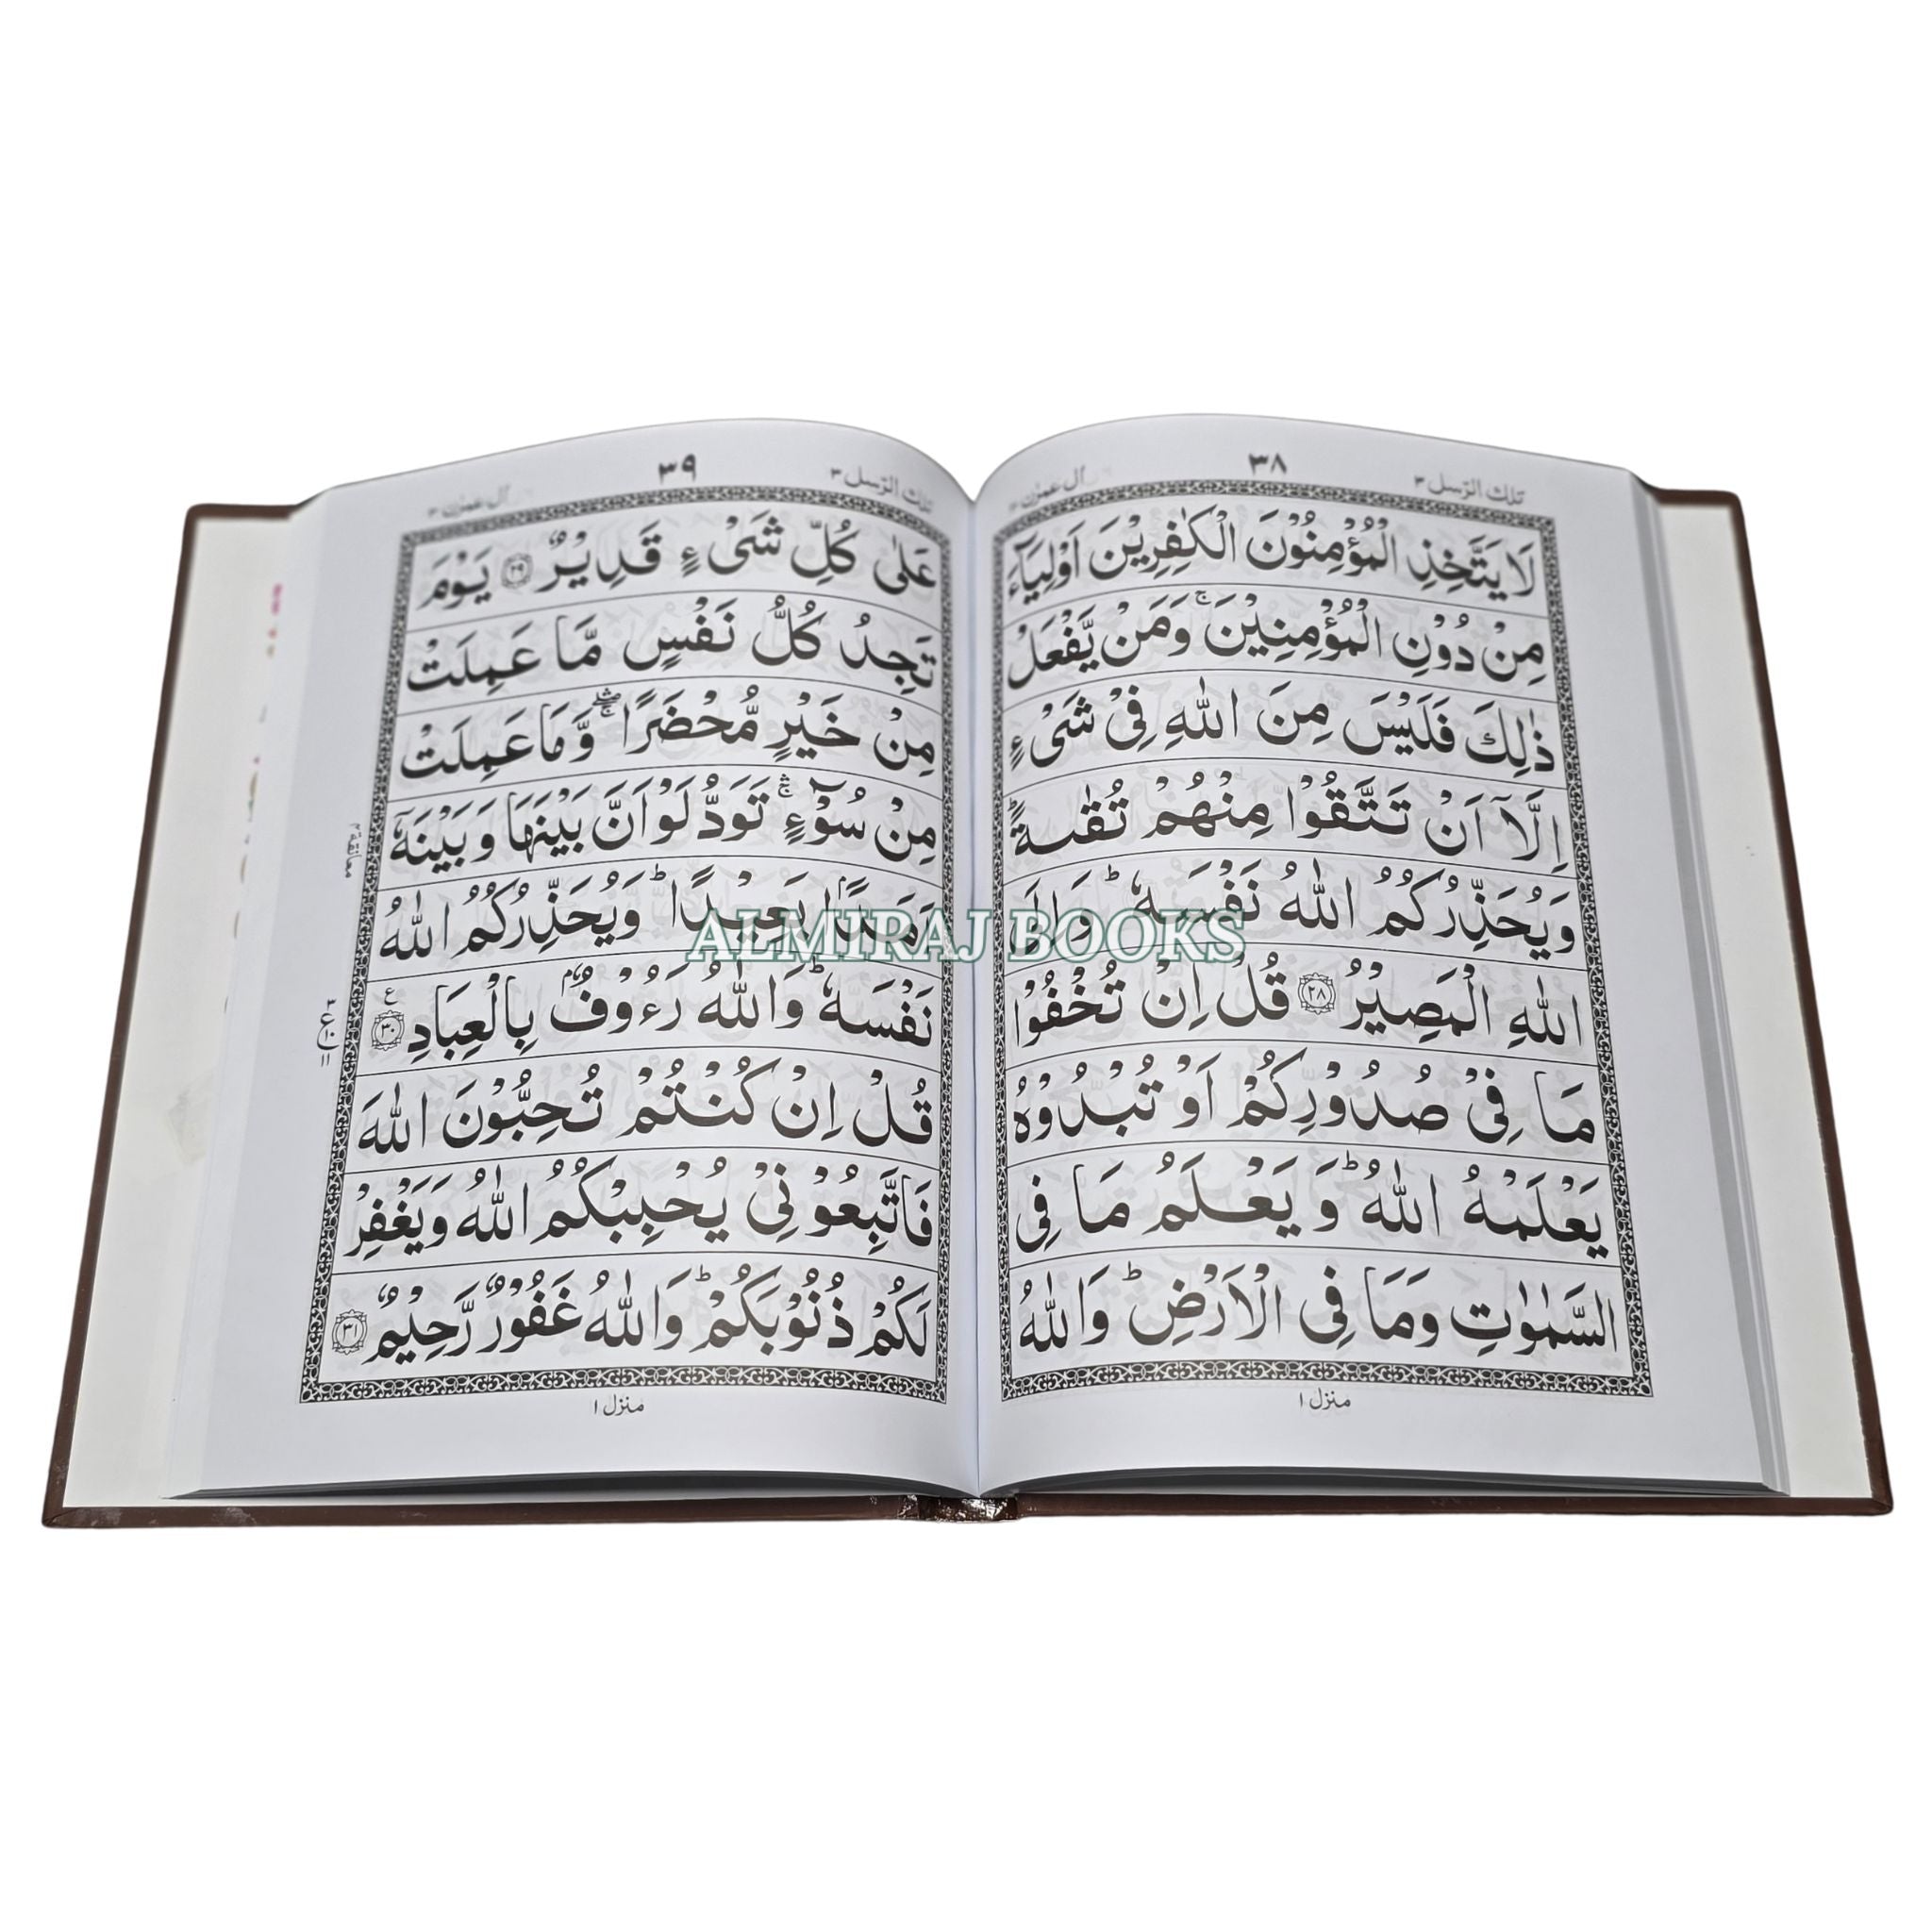 تلك الرسل ٣
٣٨
اٰل عمرٰن ٣
لَا يَتَّخِذِ الْمُؤْمِنُوْنَ الْكٰفِرِيْنَ اَوْلِيَآءَ
مِنْ دُوْنِ الْمُؤْمِنِيْنَ ۚ وَمَنْ يَّفْعَلْ
ذٰلِكَ فَلَيْسَ مِنَ اللّٰهِ فِيْ شَيْءٍ
اِلَّآ اَنْ تَتَّقُوْا مِنْهُمْ تُقٰىةً ؕ
وَيُحَذِّرُكُمُ اللّٰهُ نَفْسَهٗ ؕ وَاِلَى
اللّٰهِ الْمَصِيْرُ ۝٢٨ قُلْ اِنْ تُخْفُوْا
مَا فِيْ صُدُوْرِكُمْ اَوْ تُبْدُوْهُ
يَعْلَمْهُ اللّٰهُ ؕ وَيَعْلَمُ مَا فِي
السَّمٰوٰتِ وَمَا فِي الْاَرْضِ ؕ وَاللّٰهُ
منزل ١
تلك الرسل ٣
٣٩
اٰل عمرٰن ٣
عَلٰى كُلِّ شَيْءٍ قَدِيْرٌ ۝٢٩ يَوْمَ
تَجِدُ كُلُّ نَفْسٍ مَّا عَمِلَتْ
مِنْ خَيْرٍ مُّحْضَرًا ۛۖۚ وَّمَا عَمِلَتْ
مِنْ سُوْٓءٍ ۛۚ تَوَدُّ لَوْ اَنَّ بَيْنَهَا وَبَيْنَهٗٓ
اَمَدًۢا بَعِيْدًا ؕ وَيُحَذِّرُكُمُ اللّٰهُ
نَفْسَهٗ ؕ وَاللّٰهُ رَءُوْفٌۢ بِالْعِبَادِ ۝٣٠ ع
قُلْ اِنْ كُنْتُمْ تُحِبُّوْنَ اللّٰهَ
فَاتَّبِعُوْنِيْ يُحْبِبْكُمُ اللّٰهُ وَيَغْفِرْ
لَكُمْ ذُنُوْبَكُمْ ؕ وَاللّٰهُ غَفُوْرٌ رَّحِيْمٌ ۝٣١
معانقة ٣
٣
ع
١٠
١١
منزل ١
ALMIRAJ BOOKS